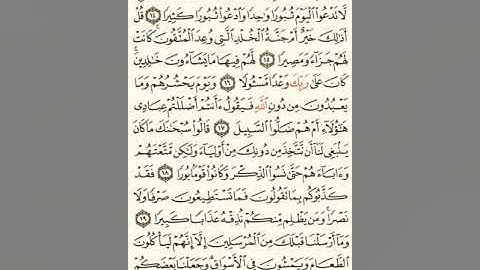 لَّا تَدْعُوا۟ ٱلْيَوْمَ ثُبُورًا وَٰحِدًا وَٱدْعُوا۟ ثُبُورًا كَثِيرًا ١٤ قُلْ
أَذَٰلِكَ خَيْرٌ أَمْ جَنَّةُ ٱلْخُلْدِ ٱلَّتِى وُعِدَ ٱلْمُتَّقُونَ كَانَتْ
لَهُمْ جَزَآءً وَمَصِيرًا ١٥ لَّهُمْ فِيهَا مَا يَشَآءُونَ خَٰلِدِينَ
كَانَ عَلَىٰ رَبِّكَ وَعْدًا مَّسْـُٔولًا ١٦ وَيَوْمَ يَحْشُرُهُمْ وَمَا
يَعْبُدُونَ مِن دُونِ ٱللَّهِ فَيَقُولُ ءَأَنتُمْ أَضْلَلْتُمْ عِبَادِى
هَٰٓؤُلَآءِ أَمْ هُمْ ضَلُّوا۟ ٱلسَّبِيلَ ١٧ قَالُوا۟ سُبْحَٰنَكَ مَا كَانَ
يَنۢبَغِى لَنَآ أَن نَّتَّخِذَ مِن دُونِكَ مِنْ أَوْلِيَآءَ وَلَٰكِن مَّتَّعْتَهُمْ
وَءَابَآءَهُمْ حَتَّىٰ نَسُوا۟ ٱلذِّكْرَ وَكَانُوا۟ قَوْمًۢا بُورًا ١٨ فَقَدْ
كَذَّبُوكُم بِمَا تَقُولُونَ فَمَا تَسْتَطِيعُونَ صَرْفًا وَلَا
نَصْرًا وَمَن يَظْلِم مِّنكُمْ نُذِقْهُ عَذَابًا كَبِيرًا ١٩
وَمَآ أَرْسَلْنَا قَبْلَكَ مِنَ ٱلْمُرْسَلِينَ إِلَّآ إِنَّهُمْ لَيَأْكُلُونَ
ٱلطَّعَامَ وَيَمْشُونَ فِى ٱلْأَسْوَاقِ وَجَعَلْنَا بَعْضَكُمْ